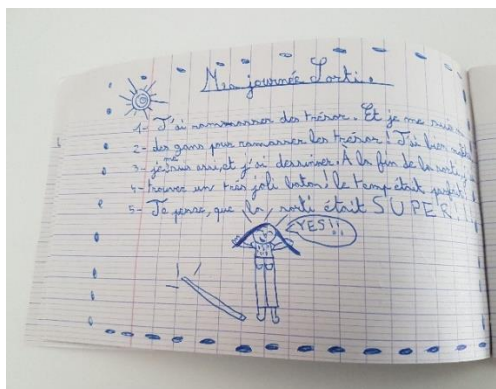 Ma journée Sorti.
1- J'ai rammasser des trésor. Et je me suis
2- des gans pour ramasser les trésor! J'ai bien
3- je me suis assi, et j'ai dessinner. À la fin de la sorti
4- trouver un très joli baton! le temp était parfait
5- Je pense, que la sorti était SUPER!!!
YES!!